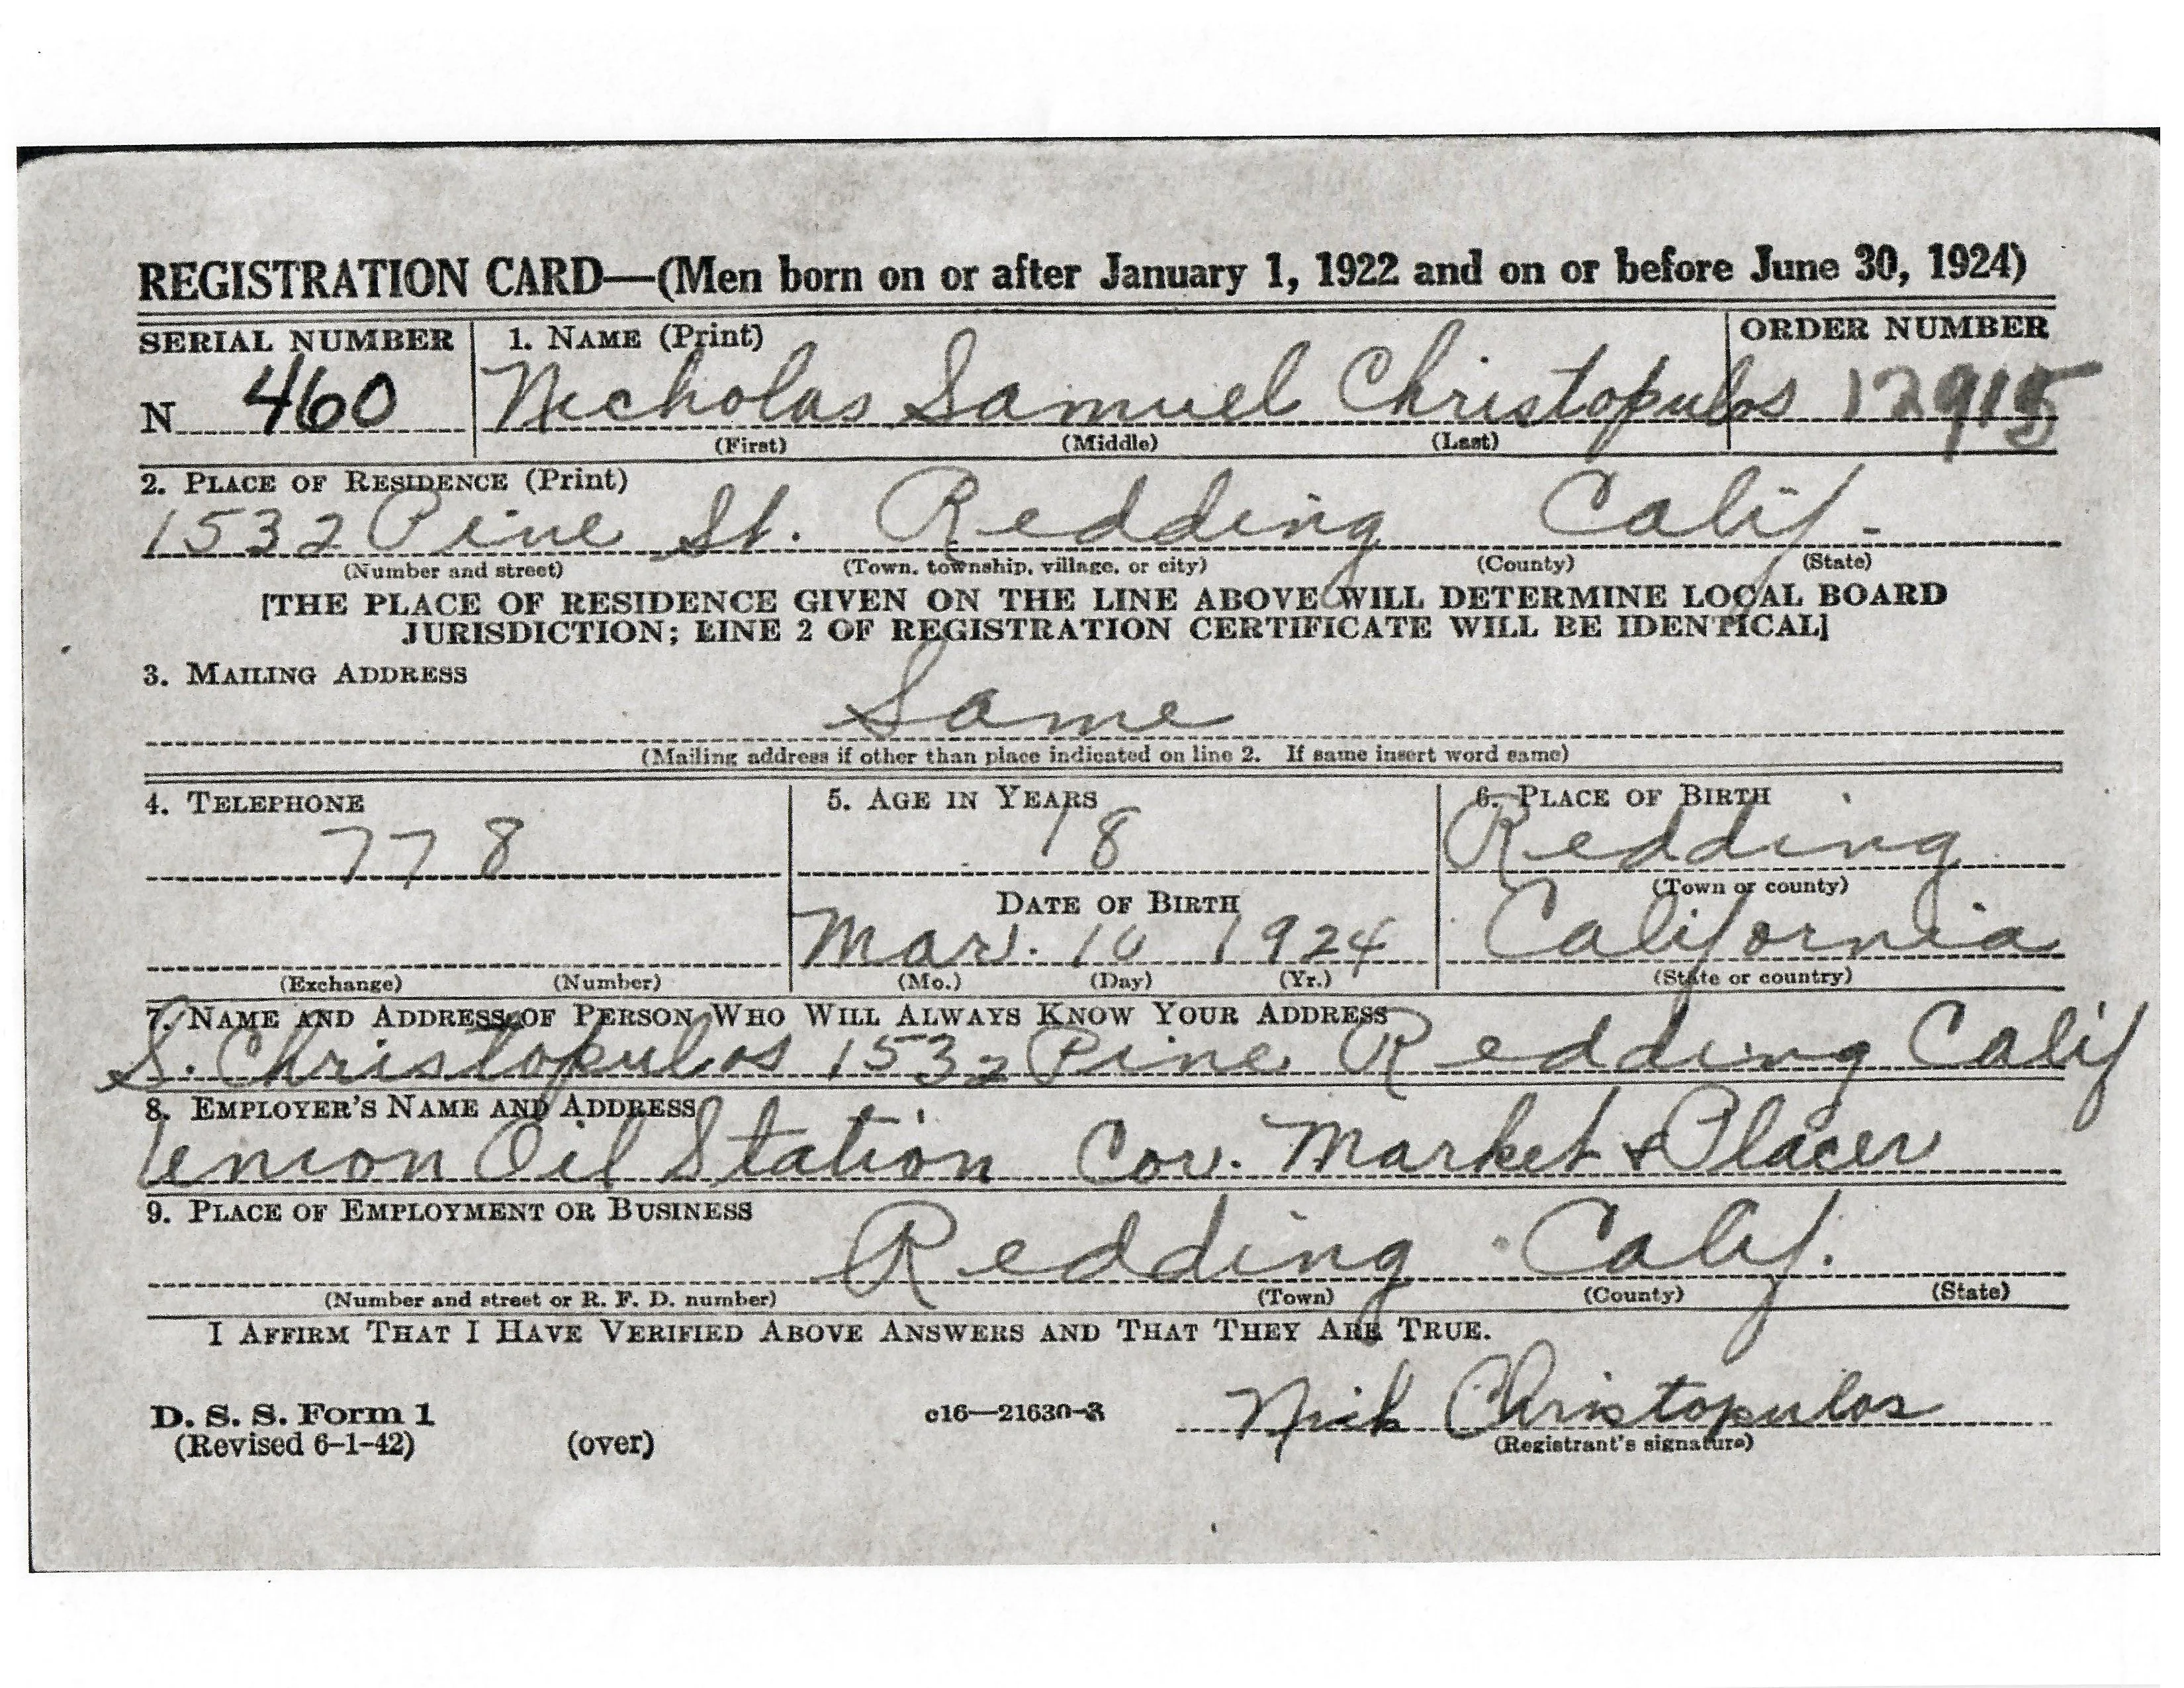 REGISTRATION CARD—(Men born on or after January 1, 1922 and on or before June 30, 1924)
SERIAL NUMBER
1. NAME (Print)
ORDER NUMBER
N 460
Nicholas Samuel Christopulos
(First) (Middle) (Last)
2. PLACE OF RESIDENCE (Print)
1532 Pine St. Redding Calif.
(Number and street) (Town, township, village, or city) (County) (State)
[THE PLACE OF RESIDENCE GIVEN ON THE LINE ABOVE WILL DETERMINE LOCAL BOARD
JURISDICTION; LINE 2 OF REGISTRATION CERTIFICATE WILL BE IDENTICAL]
3. MAILING ADDRESS
Same
(Mailing address if other than place indicated on line 2. If same insert word same)
4. TELEPHONE
778
(Exchange) (Number)
5. AGE IN YEARS
18
DATE OF BIRTH
Mar. 10 1924
(Mo.) (Day) (Yr.)
6. PLACE OF BIRTH
Redding
(Town or county)
California
(State or country)
7. NAME AND ADDRESS OF PERSON WHO WILL ALWAYS KNOW YOUR ADDRESS
S. Christopulos 1532 Pine Redding Calif
8. EMPLOYER'S NAME AND ADDRESS
Union Oil Station Cor. Market & Placer
9. PLACE OF EMPLOYMENT OR BUSINESS
Redding Calif.
(Number and street or R. F. D. number) (Town) (County) (State)
I AFFIRM THAT I HAVE VERIFIED ABOVE ANSWERS AND THAT THEY ARE TRUE.
Nick Christopulos
D. S. S. Form 1 c16—21630-3
(Revised 6-1-42) (over) (Registrant's signature)